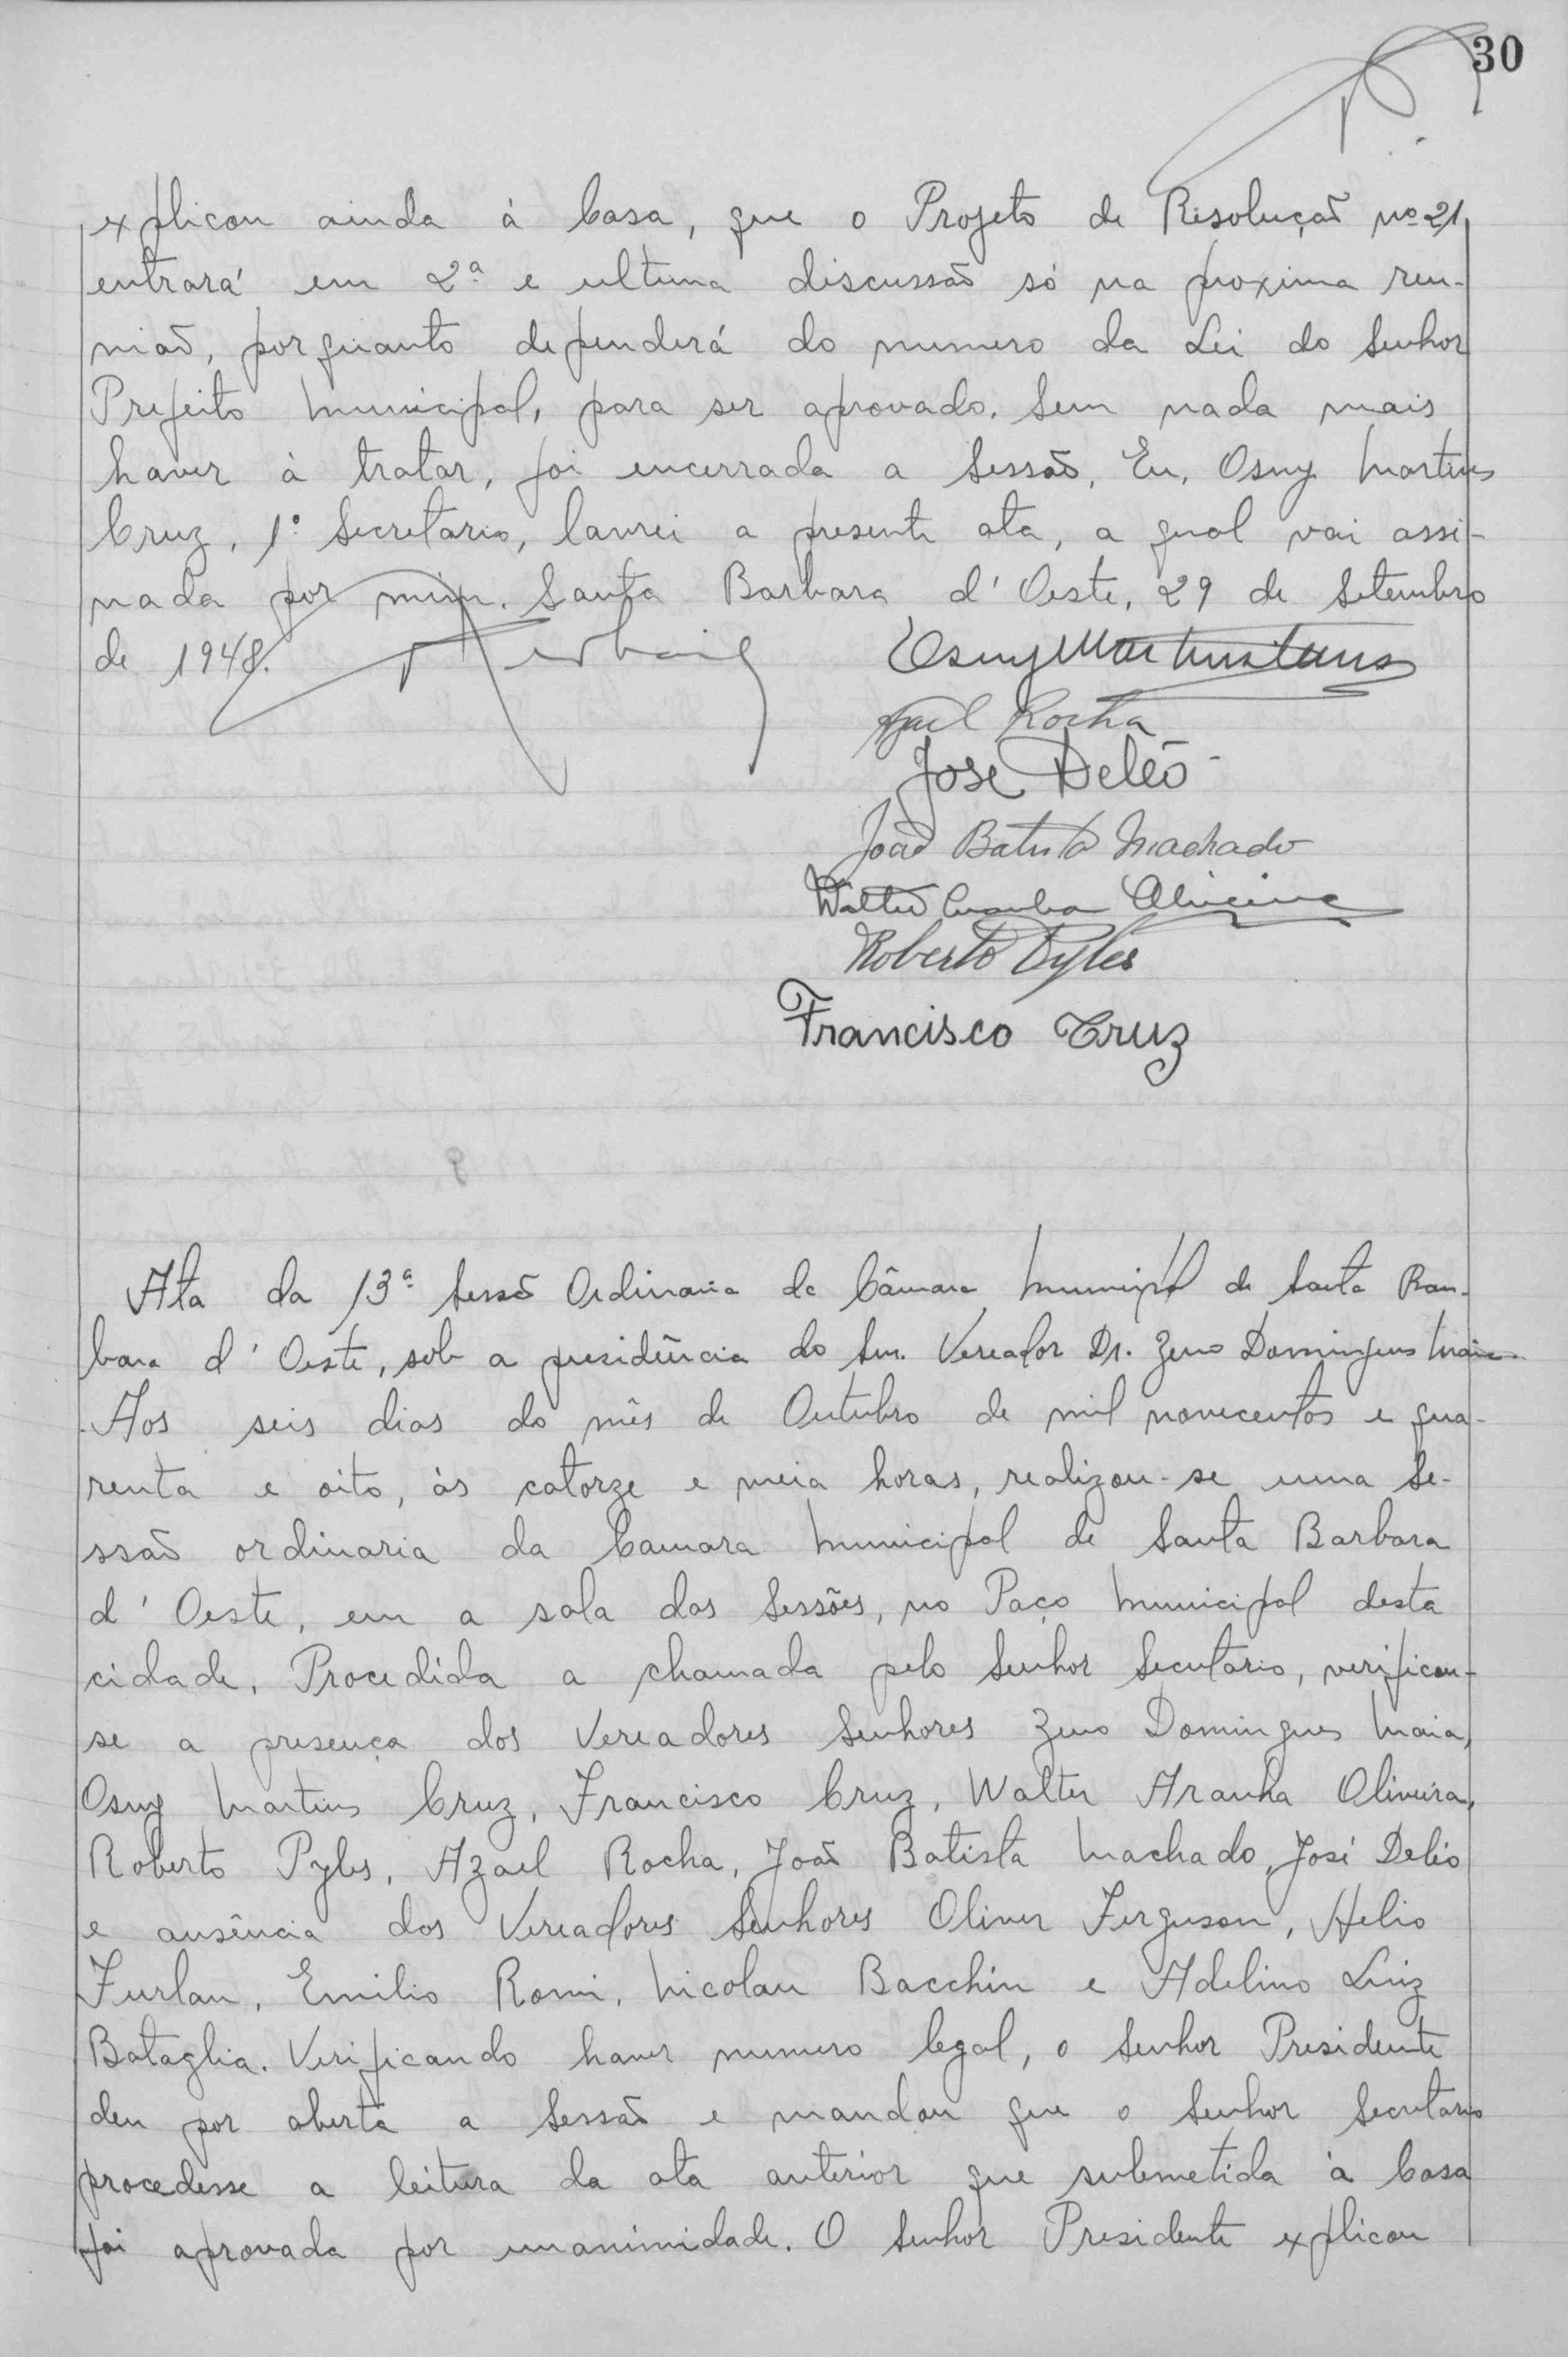 30
explicou ainda à Casa, que o Projeto de Resolução nº 21
entrará em 2ª e ultima discussão só na proxima reu-
nião, porquanto dependerá do numero da Lei do Senhor
Prefeito Municipal, para ser aprovado. Sem nada mais
haver à tratar, foi encerrada a Sessão. Eu, Osny Martins
Cruz, 1º Secretario, lavrei a presente ata, a qual vai assi-
nada por mim. Santa Barbara d'Oeste, 29 de Setembro
de 1948.
Osny Martins Cruz
Azael Rocha
José Deléo
João Batista Machado
Walter Aranha Oliveira
Roberto Pyles
Francisco Cruz
Ata da 13ª Sessão Ordinaria da Câmara Municipal de Santa Bar-
bara d'Oeste, sob a presidência do Snr. Vereador Dr. Zeno Domingues Maia
Aos seis dias do mês de Outubro de mil novecentos e qua-
renta e oito, às catorze e meia horas, realizou-se uma Se-
ssão ordinaria da Camara Municipal de Santa Barbara
d'Oeste, em a sala das Sessões, no Paço Municipal desta
cidade. Procedida a chamada pelo Senhor Secretario, verificou-
se a presença dos Vereadores Senhores Zeno Domingues Maia,
Osny Martins Cruz, Francisco Cruz, Walter Aranha Oliveira,
Roberto Pyles, Azael Rocha, João Batista Machado, José Deléo
e ausência dos Vereadores Senhores Oliver Ferguson, Helio
Furlan, Emilio Romi, Nicolau Bacchin e Adelino Luiz
Bataglia. Verificando haver numero legal, o Senhor Presidente
deu por aberta a Sessão e mandou que o Senhor Secretario
procedesse a leitura da ata anterior que submetida à Casa
foi aprovada por unanimidade. O Senhor Presidente explicou